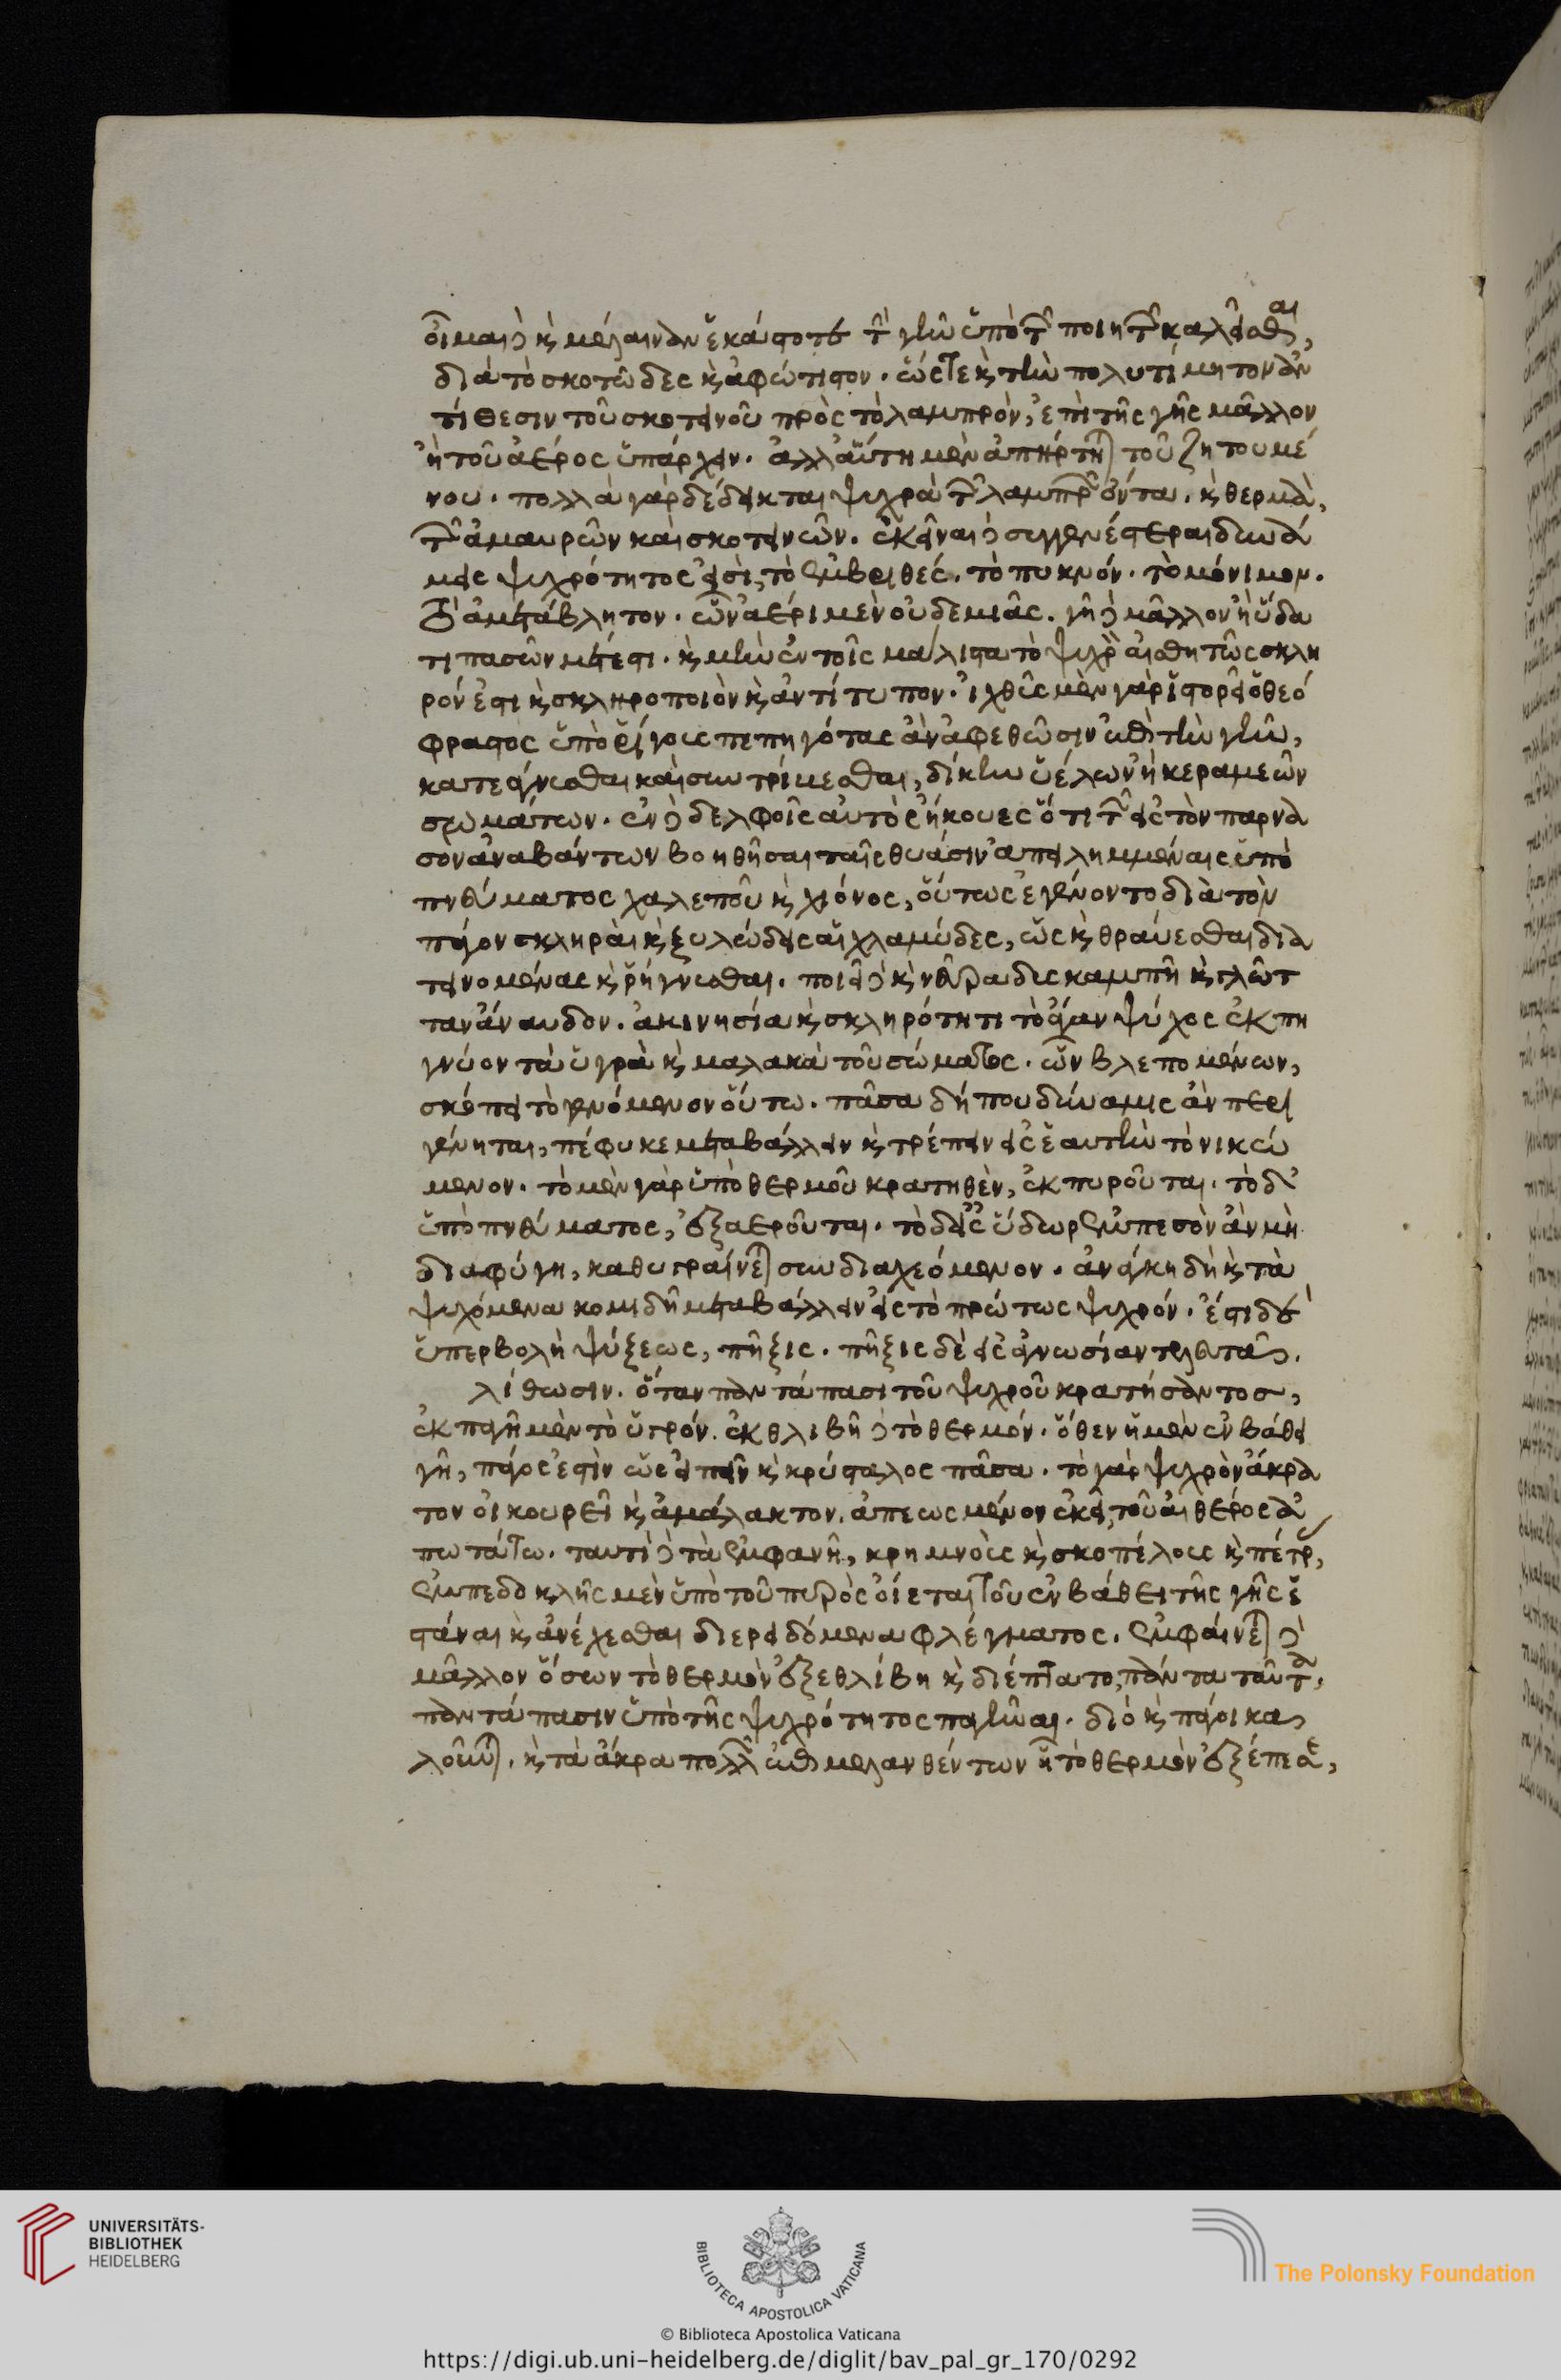 οἶμαι δὲ καὶ μέλαιναν ἑκάστοτε τὴν γῆν ὑπὸ τῶν ποιητῶν καλεῖσθαι,
διὰ τὸ σκοτῶδες καὶ ἀφώτιστον. ὥστε καὶ τὴν πολυτίμητον ἀν
τίθεσιν τοῦ σκοτεινοῦ πρὸς τὸ λαμπρὸν, ἐπὶ τῆς γῆς μᾶλλον
ἢ τοῦ ἀέρος ὑπάρχειν. ἀλλ' αὕτη μὲν ἀπήρτηται τοῦ ζητουμέ
νου. πολλὰ γὰρ δέδεικται ψυχρὰ τῶν λαμπρῶν ὄντα. καὶ θερμὰ,
τῶν ἀμαυρῶν καὶ σκοτεινῶν. ἐκεῖναι δὲ συγγενέστεραι δυνά
μεις ψυχρότητος εἰσὶ, τὸ ἐμβριθές. τὸ πυκνόν. τὸ μόνιμον.
τὸ ἀμετάβλητον. ὧν ἀέρι μὲν οὐδεμιᾶς. γῇ δὲ μᾶλλον ἢ ὕδα
τι πασῶν μέτεστι. καὶ μὴν ἐν τοῖς μάλιστα τὸ ψυχρὸν αἰσθητῶς σκλη
ρόν ἐστι καὶ σκληροποιὸν καὶ ἀντίτυπον. ἰχθῦς μὲν γὰρ ἱστορεῖ ὁ θεό
φραστος ὑπὸ ῥίγους πεπηγότας ἂν ἀφεθῶσιν ἐπὶ τὴν γῆν,
κατεάγνυσθαι καὶ συντρίβεσθαι, δίκην ὑέλων ἢ κεραμεῶν
σωμάτων. ἐν δὲ δελφοῖς αὐτὸς ἤκουες ὅτι τῶν εἰς τὸν παρνα
σον ἀναβάντων βοηθῆσαι ταῖς θυάσιν ἀπειλημμέναις ὑπὸ
πνεύματος χαλεποῦ καὶ χιόνος, οὕτως ἐγένοντο διὰ τὸν
πάγον σκληραὶ καὶ ξυλώδεις αἱ χλαμύδες, ὡς καὶ θραύεσθαι δια
τεινομένας καὶ ῥήγνυσθαι. ποιεῖ δὲ καὶ νεῦρα δυσκαμπῆ καὶ γλῶτ
ταν ἄναυδον. ἀκινησία καὶ σκληρότητι τὸ ἄγαν ψύχος ἐκπη
γνύον τὰ ὑγρὰ καὶ μαλακὰ τοῦ σώματος. ὧν βλεπομένων,
σκόπει τὸ γενόμενον οὕτω. πᾶσα δήπου δύναμις ἂν περι
γένηται, πέφυκε μεταβάλλειν καὶ τρέπειν εἰς ἑαυτὴν τὸ νικώ
μενον. τὸ μὲν γὰρ ὑπὸ θερμοῦ κρατηθὲν, ἐκπυροῦται. τὸ δ'
ὑπὸ πνεύματος, ἐξαεροῦται. τὸ δ' εἰς ὕδωρ ἐμπεσὸν ἂν μὴ
διαφύγῃ, καθυγραίνεται συνδιαχεόμενον. ἀνάγκη δὴ καὶ τὰ
ψυχόμενα κομιδῆ μεταβάλλειν εἰς τὸ πρώτως ψυχρόν. ἔστι δὲ
ὑπερβολὴ ψύξεως, πῆξις. πῆξις δὲ εἰς ἀγνωσίαν τελευτᾶ.
λίθωσιν. ὅταν παντάπασι τοῦ ψυχροῦ κρατήσαντος,
ἐκπαγῇ μὲν τὸ ὑγρόν. ἐκθλιβῇ δὲ τὸ θερμόν. ὅθεν ἡ μὲν ἐν βάθει
γῆ, πάγος ἐστὶν ὡς εἰπεῖν καὶ κρύσταλος πᾶσα. τὸ γὰρ ψυχρὸν ἄκρα
τον οἰκουρεῖ καὶ ἀμάλακτον. ἀπεωσμένον ἐκεῖ, τοῦ αἰθέρος ἀ
πωτάτω. ταυτὶ δὲ τὰ ἐμφανῆ, κρημνοὺς καὶ σκοπέλους καὶ πέτρ,
ἐμπεδοκλῆς μὲν ὑπὸ τοῦ πυρὸς οἴεται τοῦ ἐν βάθει τῆς γῆς ἑ
στάναι καὶ ἀνέχεσθαι διερειδόμενα φλέγματος. ἐμφαίνεται δὲ
μᾶλλον ὅσων τὸ θερμὸν ἐξεθλίβη καὶ διέπτατο, πάντα ταῦτα,
παντάπασιν ὑπὸ τῆς ψυχρότητος παγῆναι. διὸ καὶ πάγοι κα
λοῦνται. καὶ τὰ ἄκρα πολλῶν ἐπιμελανθέντων ᾗ τὸ θερμὸν ἐξέπεσε,
UNIVERSITÄTS-
BIBLIOTHEK
HEIDELBERG
BIBLIOTECA APOSTOLICA VATICANA
© Biblioteca Apostolica Vaticana
The Polonsky Foundation
https://digi.ub.uni-heidelberg.de/diglit/bav_pal_gr_170/0292